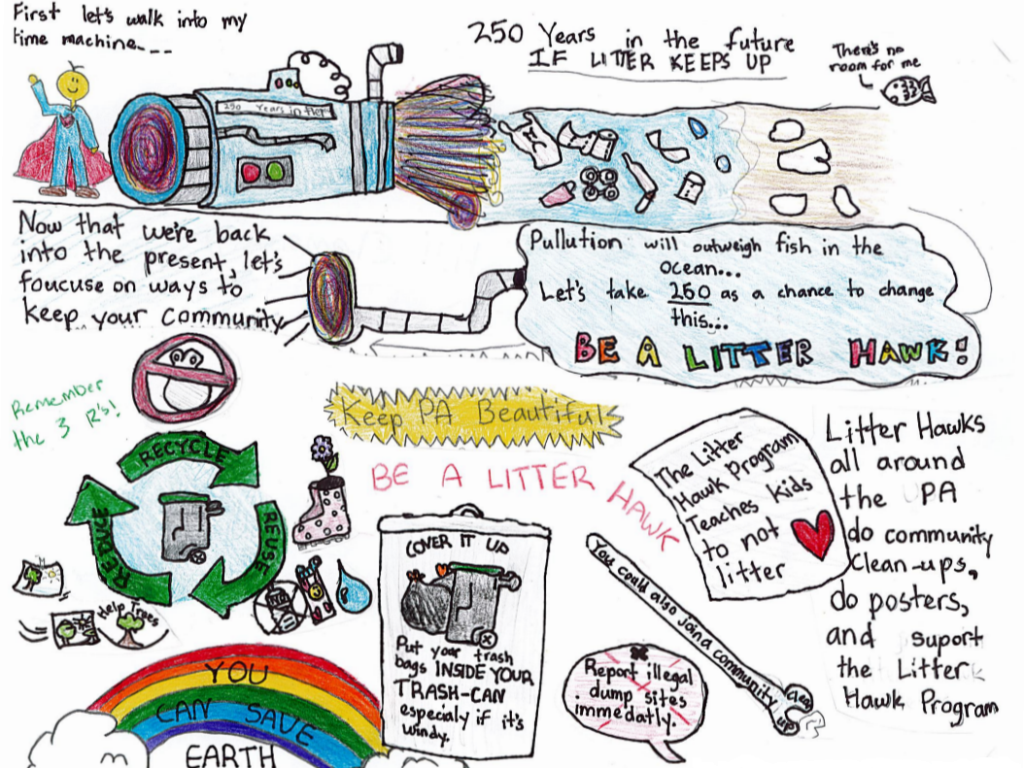 First let's walk into my
time machine....
250 Years in the future
IF LITTER KEEPS UP
There's no
room for me
250 Years in the
Now that we're back
into the present, let's
foucuse on ways to
keep your community
Pullution will outweigh fish in the
ocean...
Let's take 250 as a chance to change
this...
BE A LITTER HAWK!
Remember
the 3 R's!
RECYCLE
REUSE
REDUCE
Help Trees
Keep PA Beautiful
BE A LITTER HAWK
COVER IT UP
Put your trash
bags INSIDE YOUR
TRASH-CAN
especialy if it's
windy.
The Litter
Hawk Program
Teaches kids
to not
litter
You could also join a community clean
up
Report illegal
dump sites
immedatly.
Litter Hawks
all around
the PA
do community
Clean-ups,
do posters,
and suport
the Litter
Hawk Program
YOU
CAN SAVE
EARTH